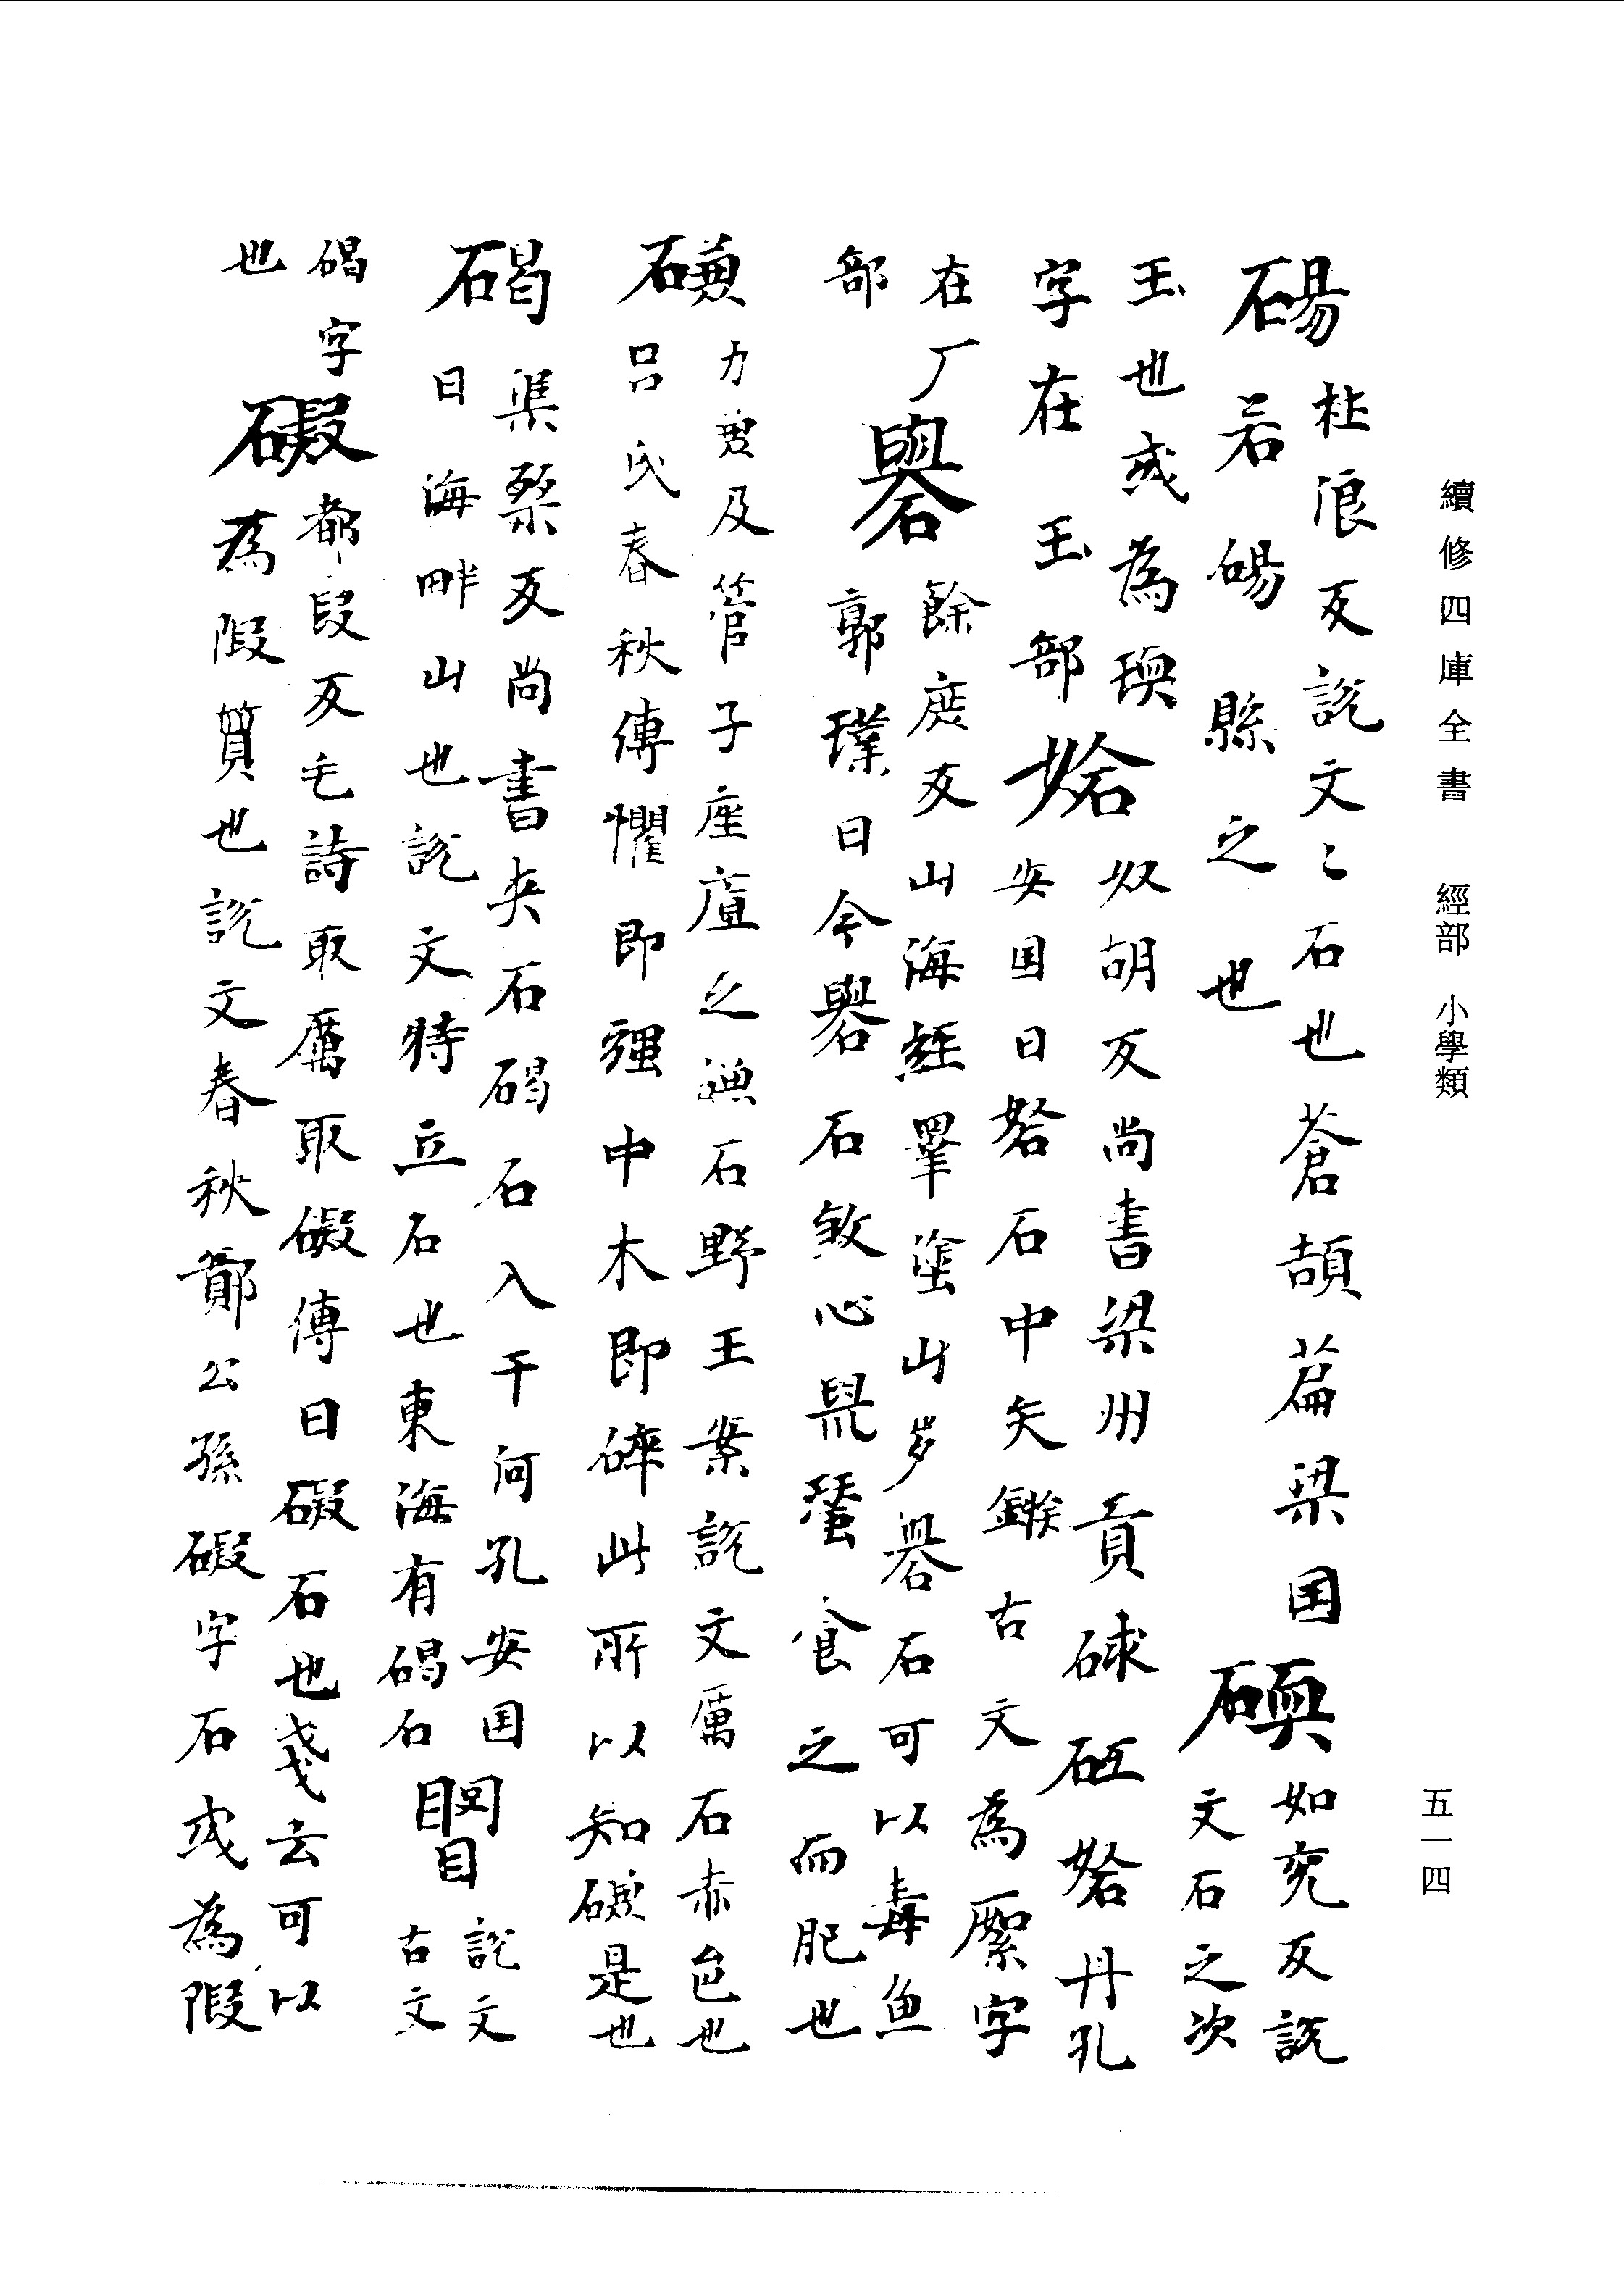 續修四庫全書 經部 小學類
五一四
碭
杜浪反說文〻石也蒼頡篇梁国
若碭縣之也
碝
如兖反說
文石之次
玉也或為瑌
字在玉部
砮
奴胡反尚書梁州貢砥砮丹孔
安国曰砮石中矢鏃古文為字
在厂
部
礜
餘庶反山海経睪塗山岁礜石可以毒魚
郭璞曰今礜石煞鼠蝅食之而肥也
磏
力兼反管子座廬之磏石野王案說文厲石赤色也
呂氏春秋傳懼即強中木即碎此所以知磏是也
碣
渠桀反尚書夾石碣石入于河孔安国
曰海畔山也說文特立石也東海有碣石
說文
古文
碣字
也
碬
都段反毛詩取厲取碬傳曰碬石也戔云可以
為段質也說文春秋鄭公孫碬字石或為段